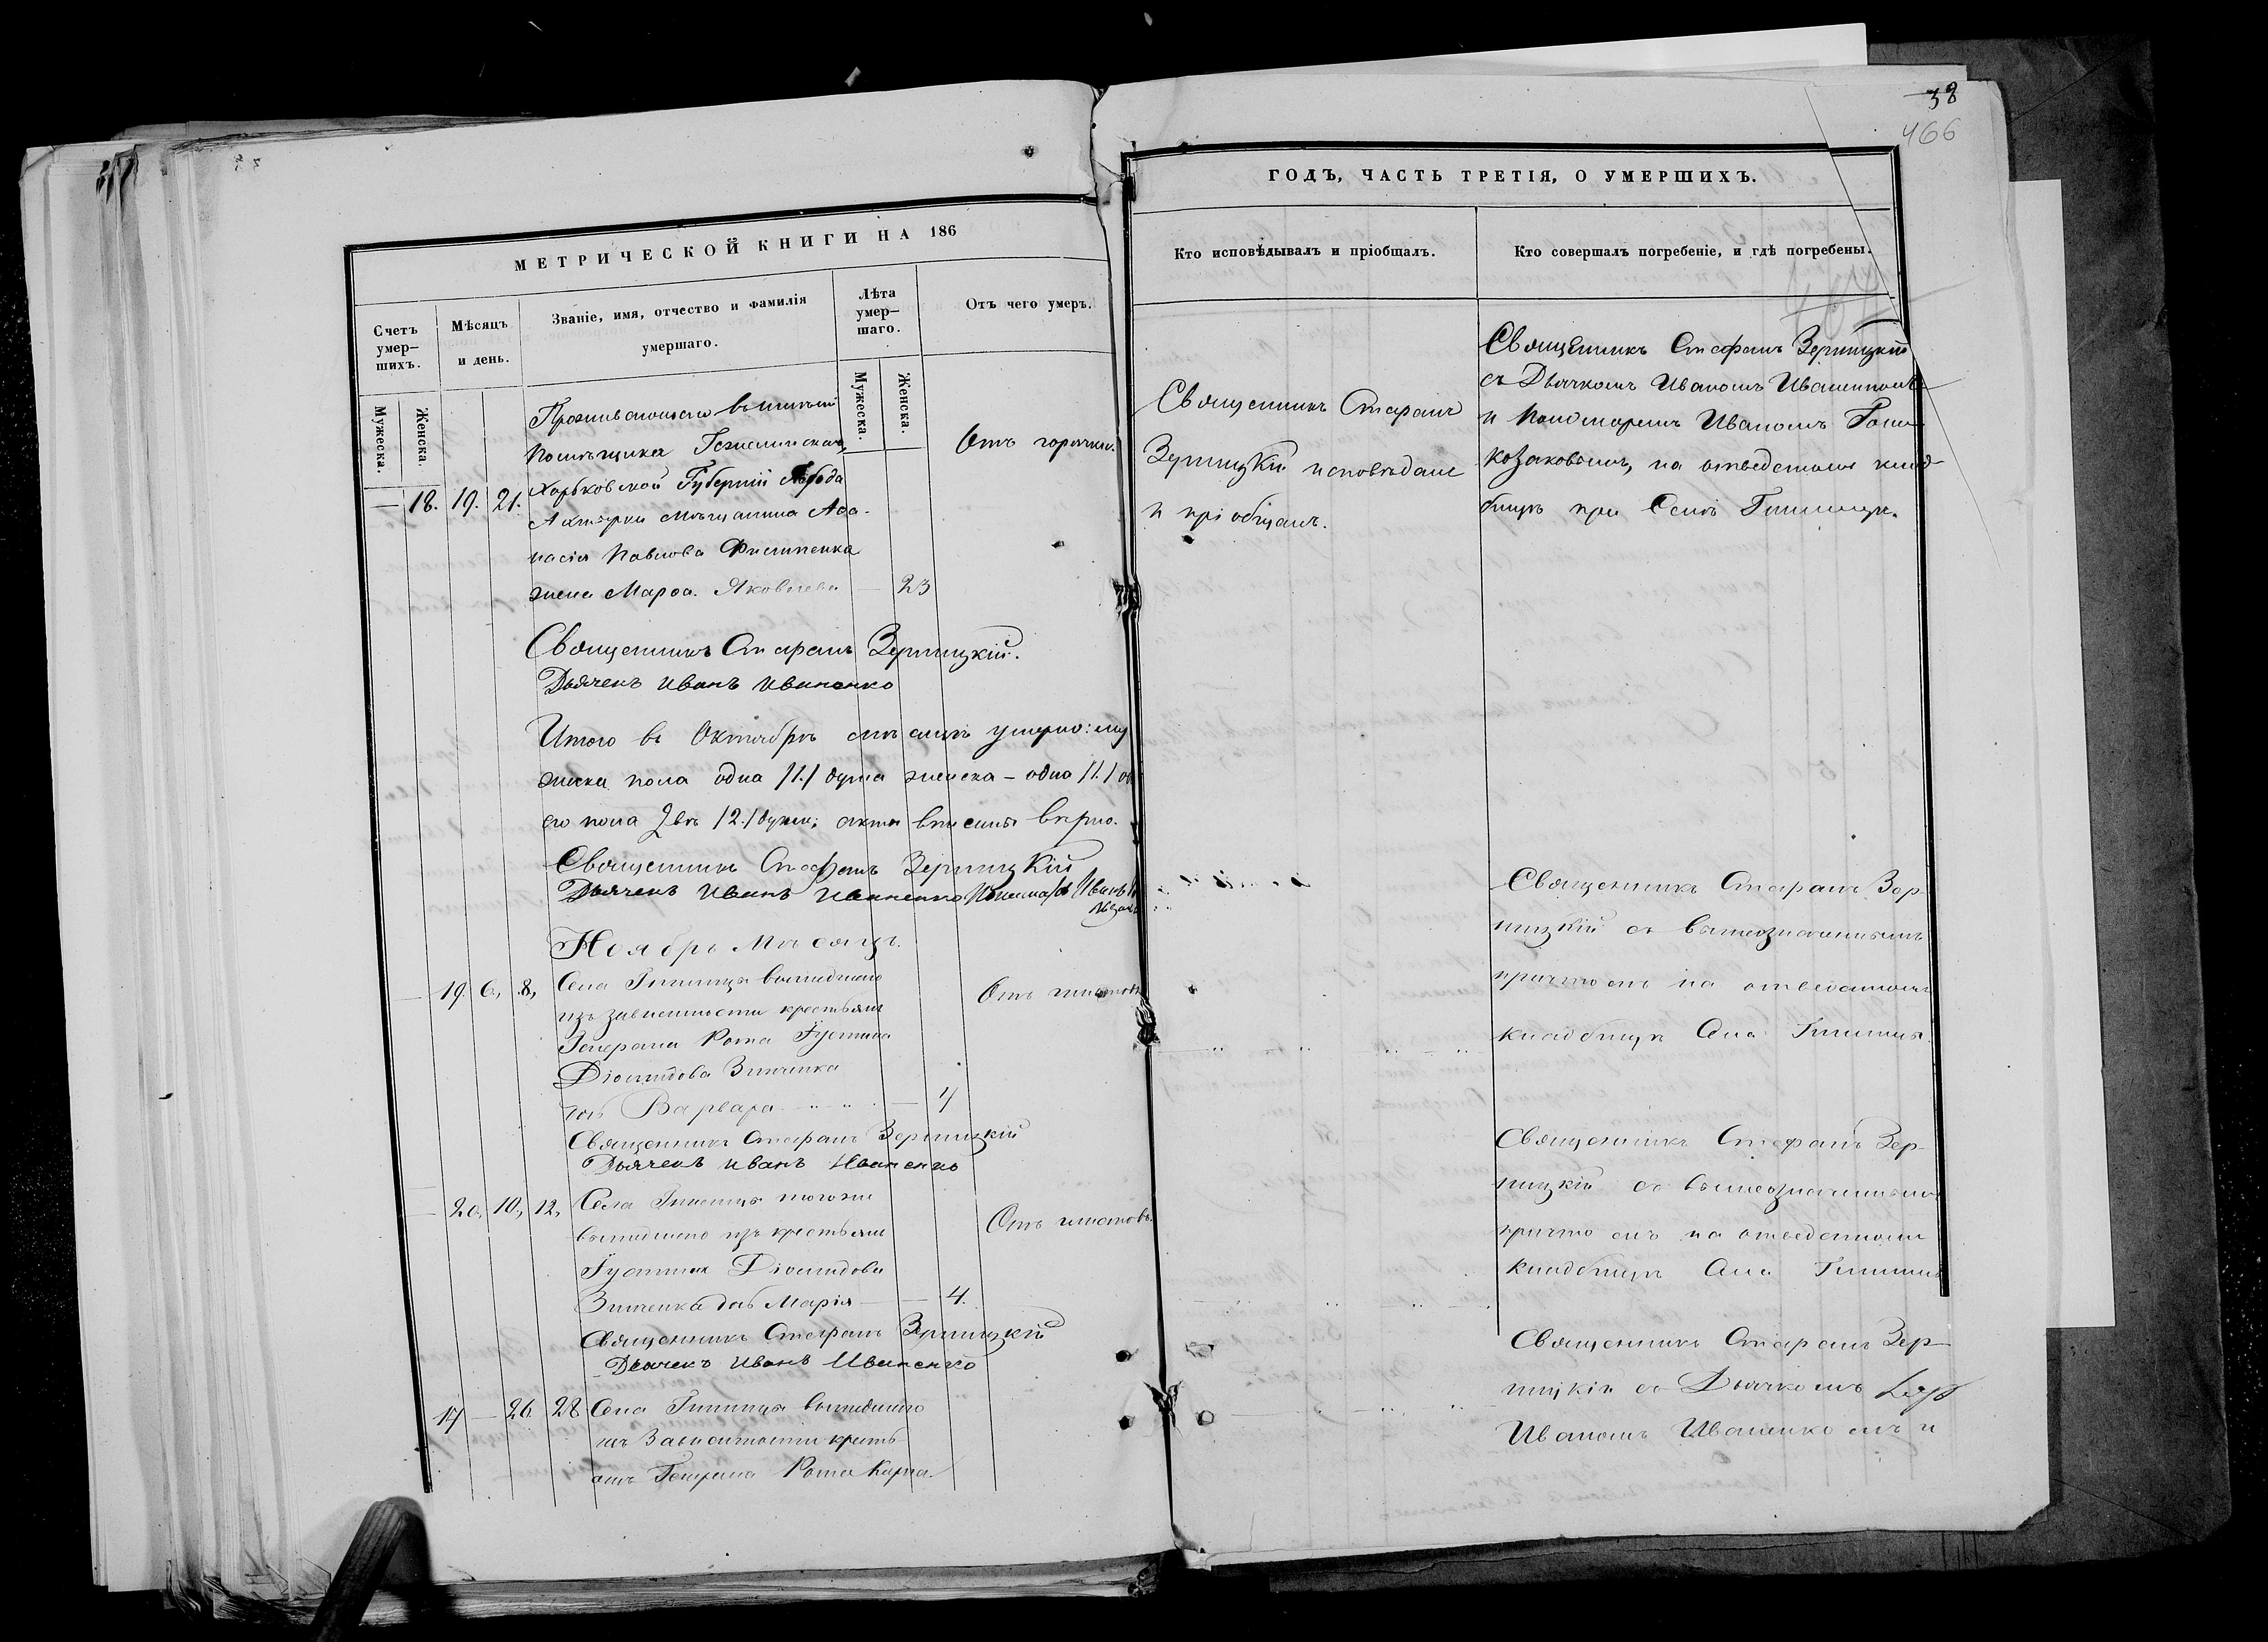 МЕТРИЧЕСКОЙ КНИГИ НА 186
Счетъ умер-шихъ.
Мѣсяцъ и день.
Званіе, имя, отчество и фамилія умершаго.
Лѣта умер-шаго.
Отъ чего умеръ.
Мужеска.
Женска.
Мужеска.
Женска.
Помѣщика
— 18. 19. 21.
Харьковской Губерніи
Ахтырки мѣщанина Аѳа-
насія Павлова Филипенка
жена Марѳа Яковлева — 23
Отъ горячки.
Священникъ Стефанъ Зерницкій.
Дьячекъ Иванъ Иваненко
Итого въ Октябрѣ мѣсяцѣ умерло: му
жеска пола одна /1./ душа женска — одна /1./ обо
его пола двѣ /2./ души; акты вписаны вѣрно.
Священникъ Стефанъ Зерницкій
Дьячекъ Иванъ Иваненко Иванъ
Ноябрь Мѣсяцъ.
— 19. 6, 8,
Села вышедшаго
изъ зависимости крестьянъ
Генерала Рота Іустина
Діомидова Зинченка
дочь Варвара — 4
Отъ
Священникъ Стефанъ Зерницкій
Дьячекъ Иванъ Иваненко
— 20, 10, 12,
Села тогоже
вышедшаго изъ крестьянъ
Іустина Діомидова
Зинченка дочь Марія — 4.
Отъ
Священникъ Стефанъ Зерницкій
Дьячекъ Иванъ Иваненко
17 — 26 28
Села вышедшаго
изъ Зависимости кресть
янъ Генерала Рота Карпа
38
466
ГОДЪ, ЧАСТЬ ТРЕТІЯ, О УМЕРШИХЪ.
Кто исповѣдывалъ и пріобщалъ.
Кто совершалъ погребеніе, и гдѣ погребены.
Священникъ Стефанъ
Зерницкій исповѣдалъ
и пріобщалъ.
Священникъ Стефанъ Зерницкій
съ Дьячкомъ Иваномъ Иваненкомъ
и Пономаремъ Иваномъ
на отведенномъ клад-
бищѣ при Селѣ
Священникъ Стефанъ Зер-
ницкій съ вышеозначеннымъ
причтомъ на отведенномъ
кладбищѣ Села
Священникъ Стефанъ Зер-
ницкій съ вышеозначеннымъ
причтомъ на отведенномъ
кладбищѣ Села
Священникъ Стефанъ Зер-
ницкій съ Дьячкомъ
Иваномъ Иваненкомъ и